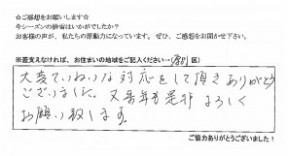 ☆ご感想をお願いします☆
今シーズンの除雪はいかがでしたか？
お客様の声が、私たちの原動力になっています。ぜひ、ご感想をお聞かせ下さい。
※差支えなければ、お住まいの地域をご記入ください…（ 区）
大変ていねいな対応をして頂きありがとう
ございました。又来年も是非よろしく
お願い致します。
ご協力ありがとうございました！